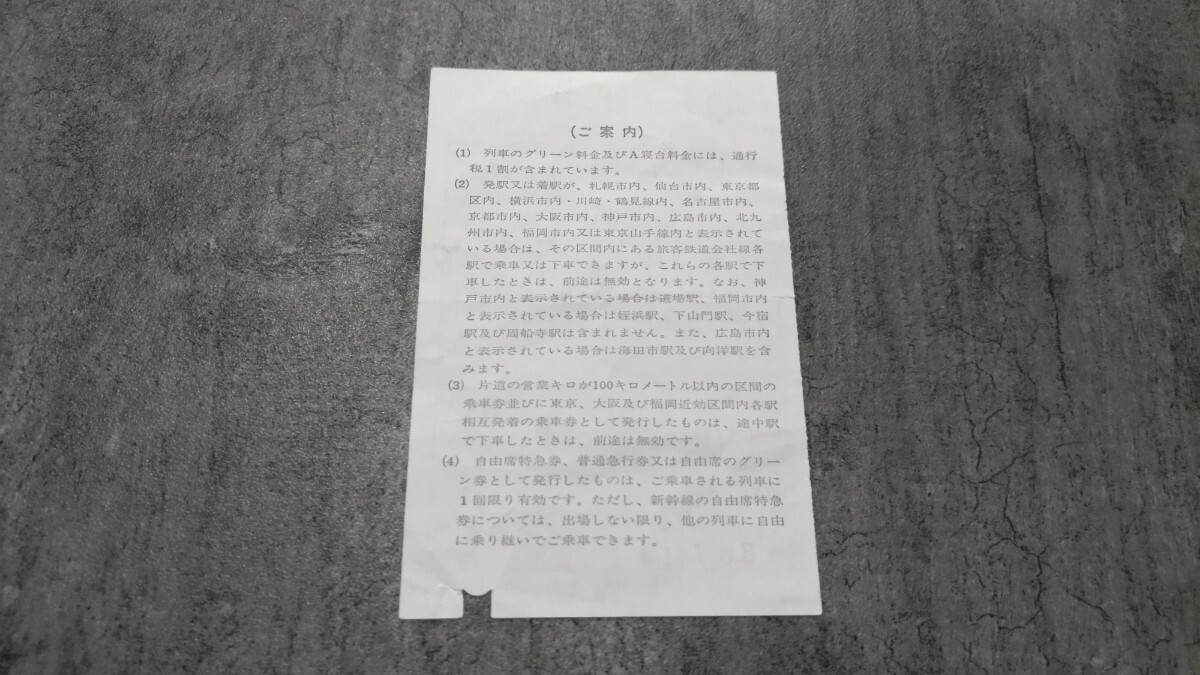 (ご案内)
(1) 列車のグリーン料金及びA寝台料金には、通行
税1割が含まれています。
(2) 発駅又は着駅が、札幌市内、仙台市内、東京都
区内、横浜市内・川崎・鶴見線内、名古屋市内、
京都市内、大阪市内、神戸市内、広島市内、北九
州市内、福岡市内又は東京山手線内と表示されて
いる場合は、その区間内にある旅客鉄道会社線各
駅で乗車又は下車できますが、これらの各駅で下
車したときは、前途は無効となります。なお、神
戸市内と表示されている場合は道場駅、福岡市内
と表示されている場合は姪浜駅、下山門駅、今宿
駅及び周船寺駅は含まれません。また、広島市内
と表示されている場合は海田市駅及び向洋駅を含
みます。
(3) 片道の営業キロが100キロメートル以内の区間の
乗車券並びに東京、大阪及び福岡近効区間内各駅
相互発着の乗車券として発行したものは、途中駅
で下車したときは、前途は無効です。
(4) 自由席特急券、普通急行券又は自由席のグリー
ン券として発行したものは、ご乗車される列車に
1回限り有効です。ただし、新幹線の自由席特急
券については、出場しない限り、他の列車に自由
に乗り継いでご乗車できます。